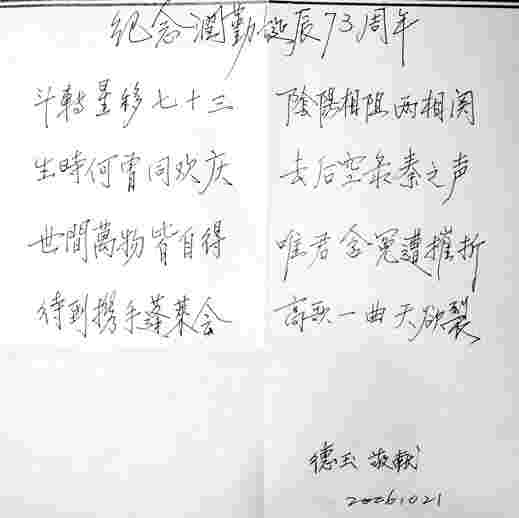 纪念潤勤诞辰73周年
斗轉星移七十三 陰陽相阻两相関
生時何曾同欢庆 去后空泉奏之声
世間萬物皆自得 唯君含冤遭摧折
待到携手蓬莱会 高歌一曲天欲裂
德玉 敬献
20061021